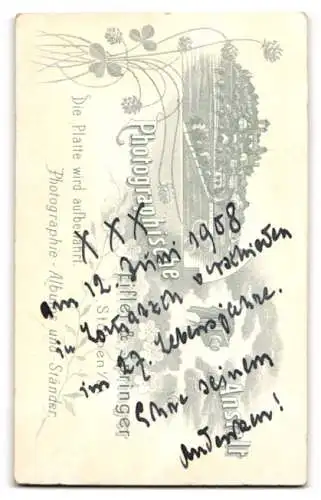 XXX
am 12. Juni 1908
in verschieden
im 27. Lebensjahre.
Ehre seinem
Andenken!
Photographische
Anstalt
Die Platte wird aufbewahrt.
Photographie-Album und Ständer.